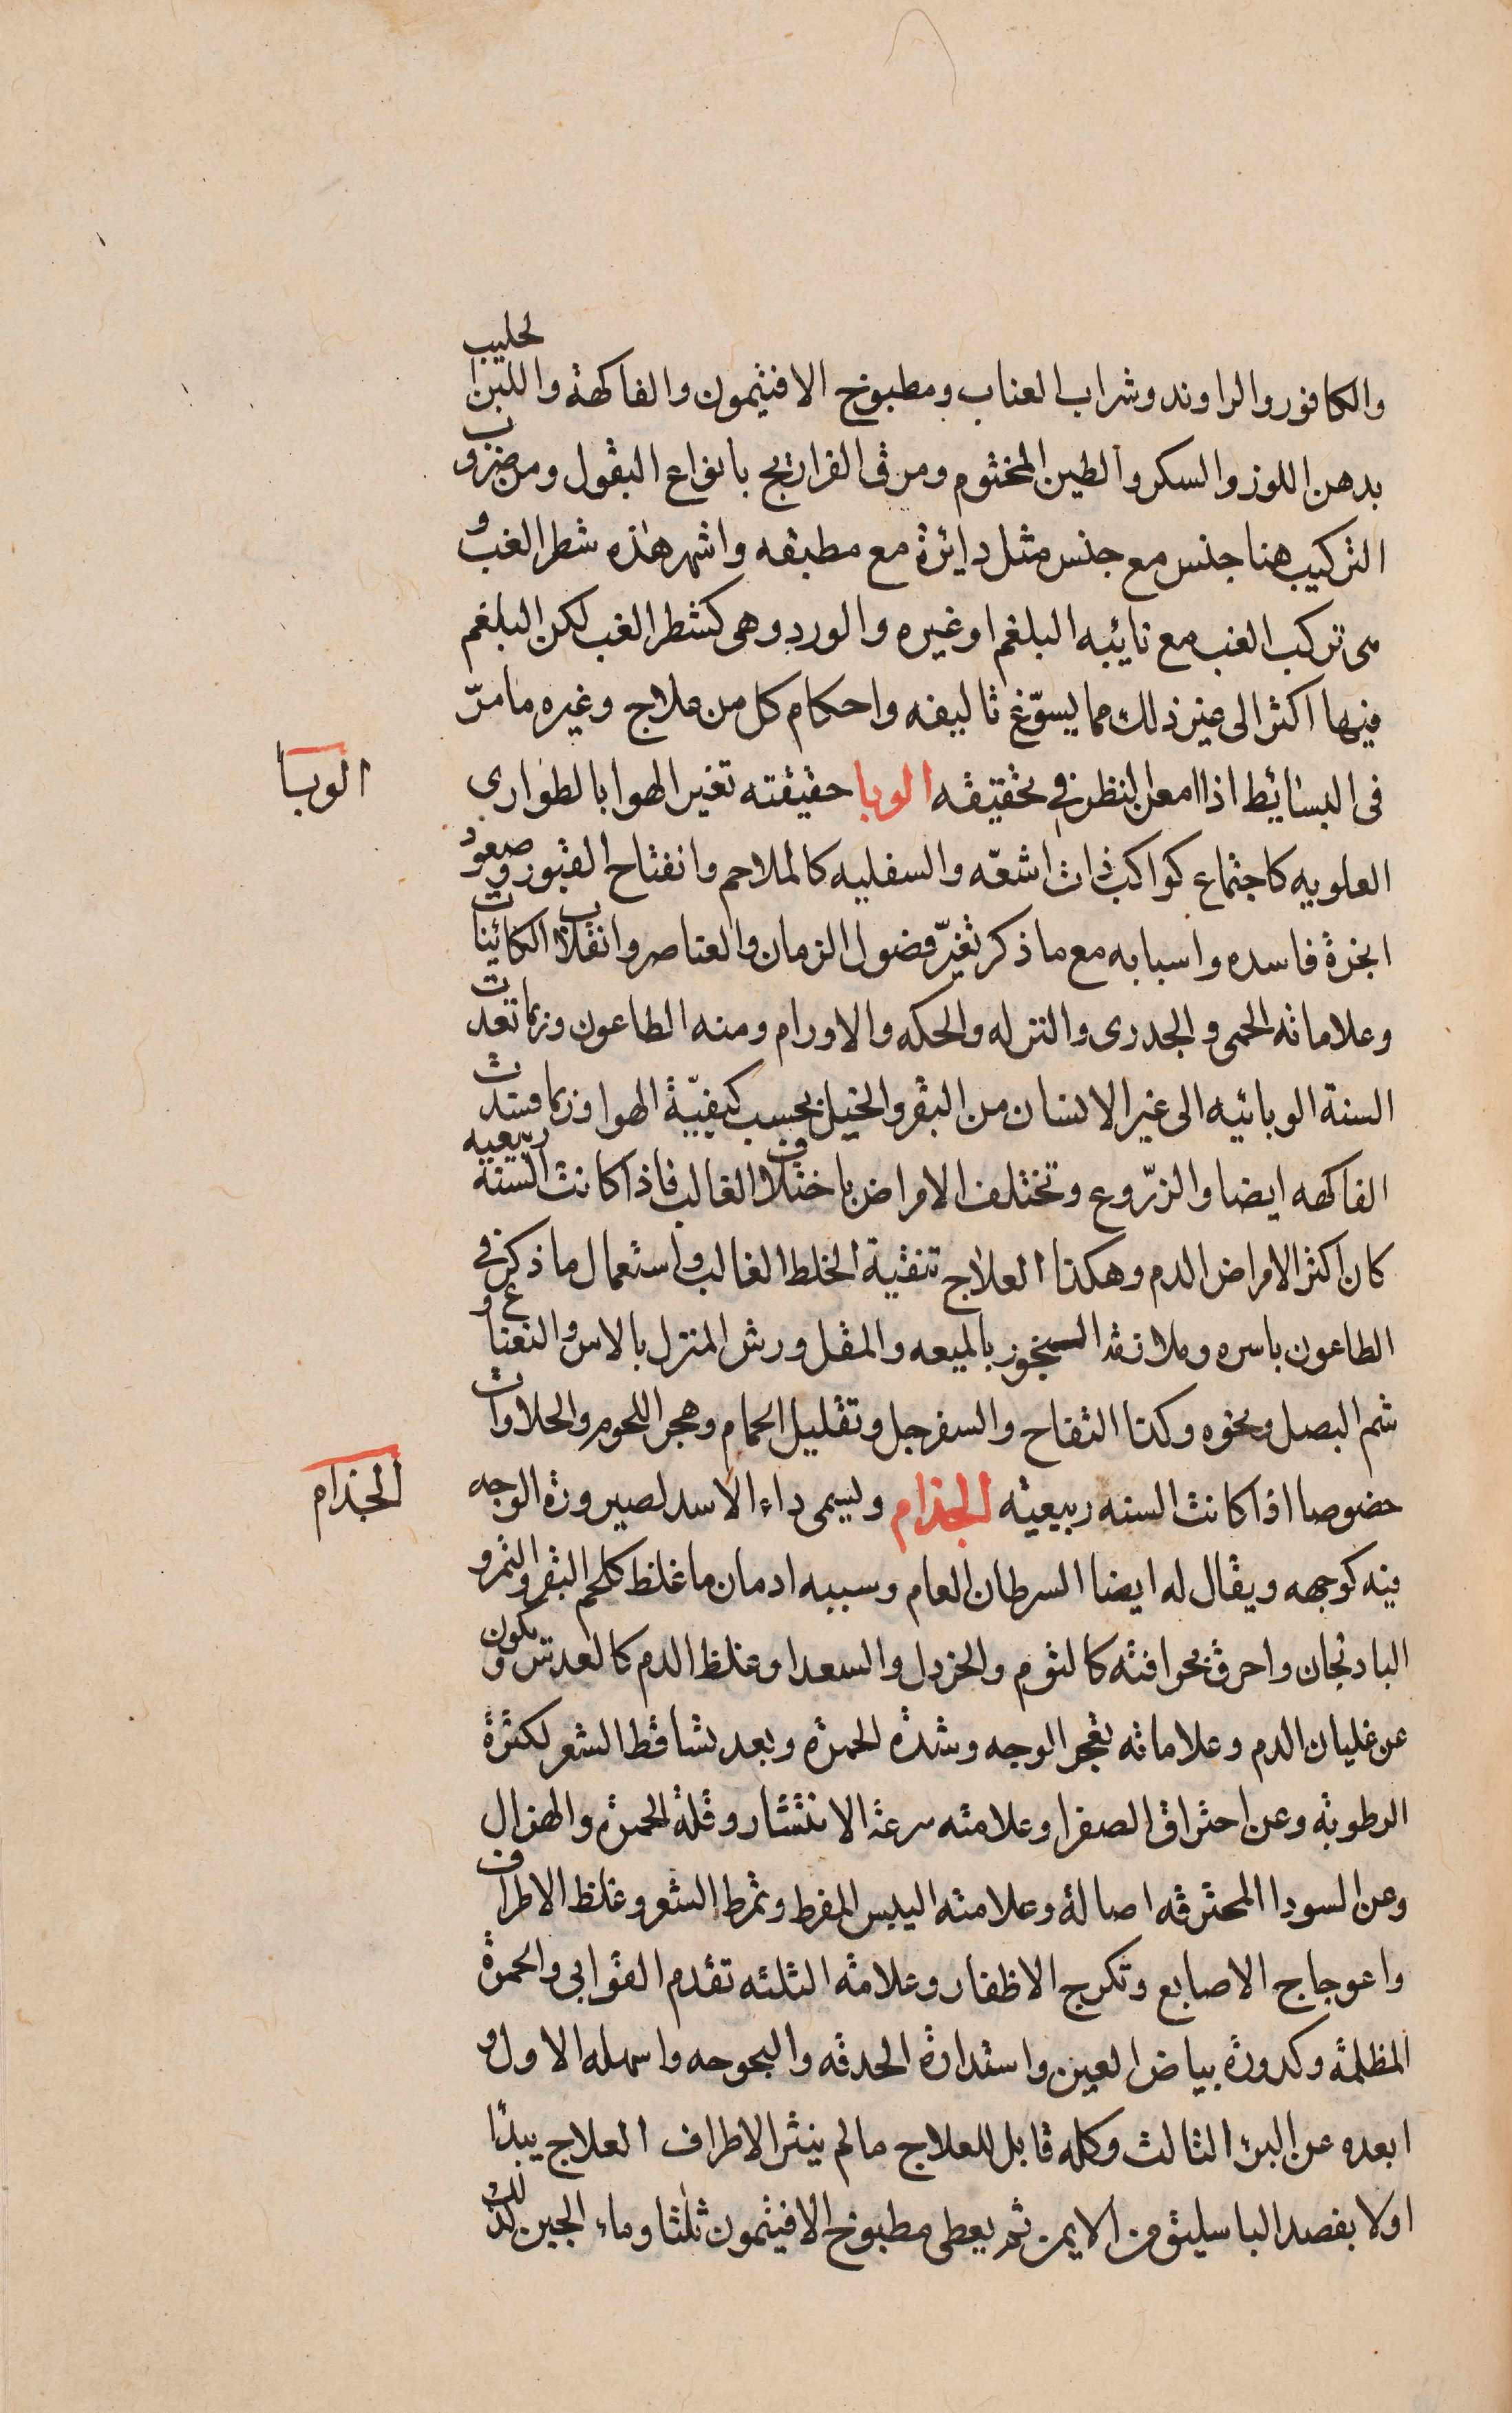 والكافور والراوند وشراب العناب ومطبوخ الافثيمون والفاكهة واللبن الحليب
بدهن اللوز والسكر والطين المختوم ومرق الفراريج بانواع البقول ومن ضروب
التركيب هنا جنس مع جنس مثل دايرة مع مطبقه واشهر هذه شطر الغب و
هى تركب الغب مع نايبه البلغم اوغيره والورد وهى كشطر الغب لكن البلغم
فيها اكثر الى غير ذلك مما يسوّغ تاليفه واحكام كل من علاج وغيره ما مرّ
فى البسائط اذا امعن النظر فى تحقيقه الوبا حقيقته تغير الهوا بالطوارى
الوبا
العلويه كاجتماع كواكب ذات اشعّه والسفليه كالملاحم وانفتاح القبور وصعود
ابخرة فاسده واسبابه مع ما ذكر تغيّر فصول الزمان والعناصر وانقلاب الكائينات
وعلاماته الحمى والجدرى والنزله والحكه والاورام ومنه الطاعون وربما تعدت
السنة الوبائيه الى غير الانسان من البقر والخيل بحسب كيفيّة الهوا وربما فسدت
الفاكهه ايضا والزّروع وتختلف الامراض باختلاف الغالب فاذا كانت السنه ربيعيه
كان اكثر الامراض الدم وهكذا العلاج تنقية الخلط الغالب واستعمال ما ذكر فى
الطاعون باسره وملازمة البخور بالميعه والمقل ورش المنزل بالاس والنعناع و
شم البصل ونحوه وكذا التفاح والسفرجل وتقليل الحمام وهجر اللحوم والحلاوات
خصوصا اذا كانت السنه ربيعيه الجذام ويسمى داء الاسد لصيرورة الوجه
الجذام
فيه كوجهه ويقال له ايضا السرطان العام وسببه ادمان ما غلظ كلحم البقر والتمر و
البادنجان واحرق بحرافته كالثوم والخردل والسعد اوغلظ الدم كالعدس ويكون
عن غليان الدم وعلاماته تفجر الوجه وشدة الحمرة وبعد تساقط الشعر لكثرة
الرطوبه وعن احتراق الصفرا وعلامته سرعة الانتثار وقلة الحمرة والهزال
وعن السودا المحترقه اصالة وعلامته اليبس المفرط وتمرط الشعر وغلظ الاطراف
واعوجاج الاصابع وتكرج الاظفار وعلامة الثلثه تقدم القوابى والحمرة
المظلمة وكدورة بياض العين واستدارة الحدقه والبحوحه واسهله الاول و
ابعده عن البرء الثالث وكله قابل للعلاج ما لم ينثر الاطراف العلاج يبدا
اولا بفصد الباسليق من الايمن ثم يعطى مطبوخ الافيثمون ثلثا وماء الجبن كذلك